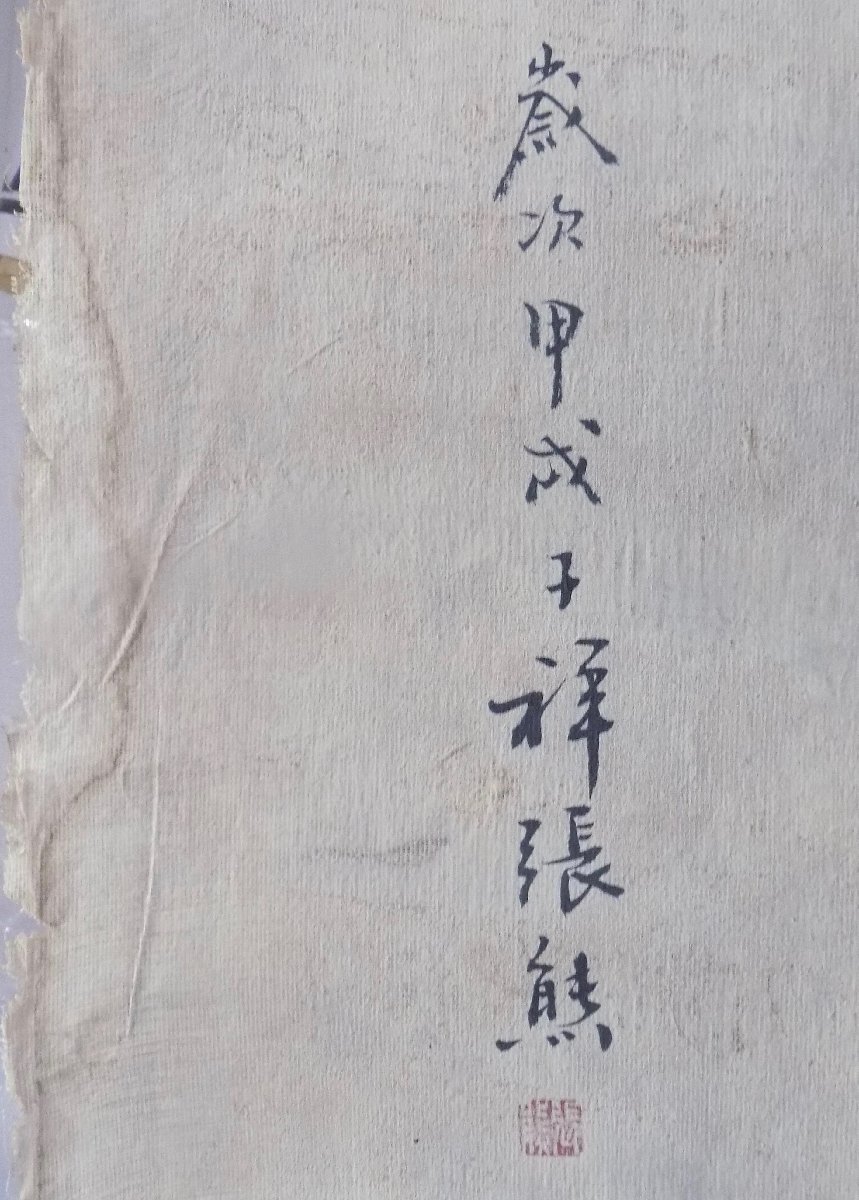 歲次甲戌子祥張熊